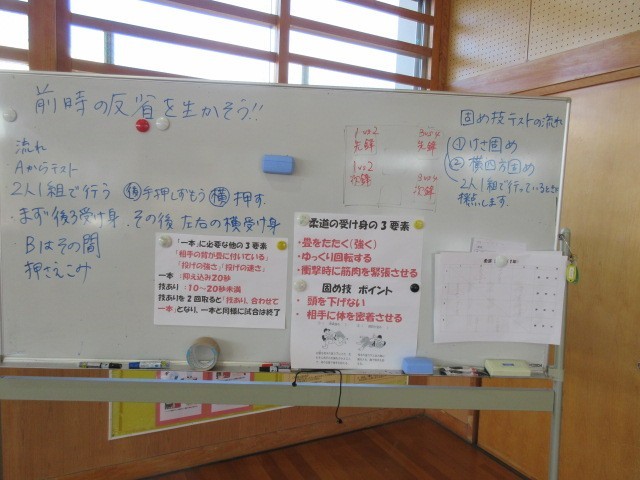 前時の反省を生かそう!!
流れ
Aからテスト
2人1組で行う 後 手押しずもう 横 押す.
・まず後ろ受け身、その後 左右の横受け身
・Bはその間
押さえこみ
1 vs 2
先鋒
3 vs 4
先鋒
1 vs 2
次鋒
3 vs 4
次鋒
固め技テストの流れ
①けさ固め
②横四方固め
2人1組で行っているときに
採点します.
「一本」に必要な他の3要素
「相手の背が畳に付いている」
「投げの強さ」「投げの速さ」
一本 :抑え込み20秒
技あり:10~20秒未満
技ありを2回取ると「技あり、合わせて
一本」となり、一本と同様に試合は終了
柔道の受け身の3要素
・畳をたたく(強く)
・ゆっくり回転する
・衝撃時に筋肉を緊張させる
固め技 ポイント
・頭を下げない
・相手に体を密着させる